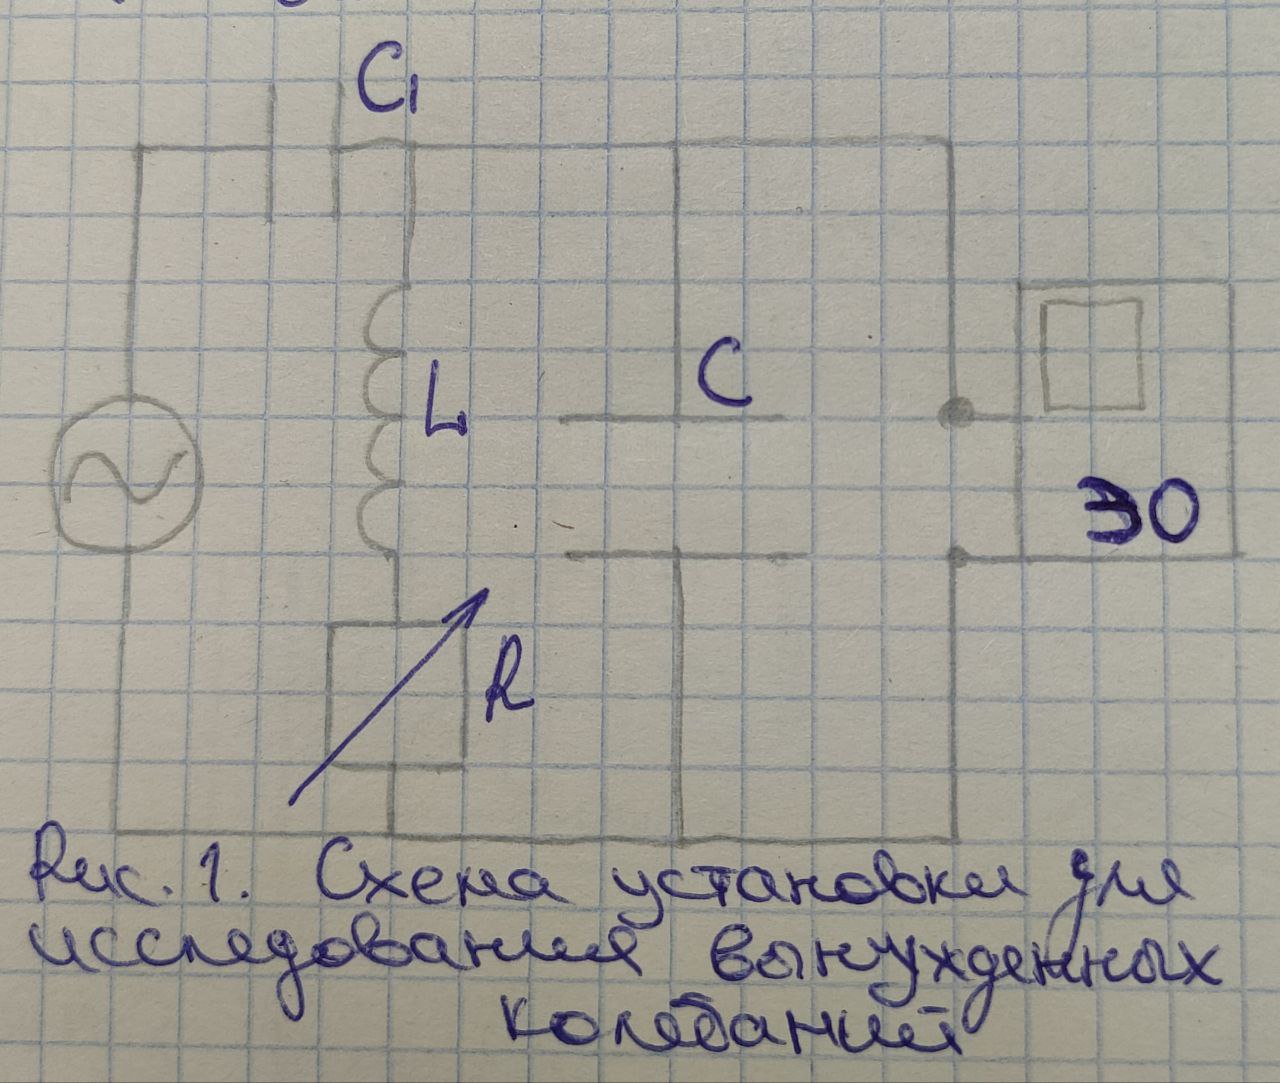 C₁
L
C
ЭО
R
Рис. 1. Схема установки для
исследования вынужденных
колебаний